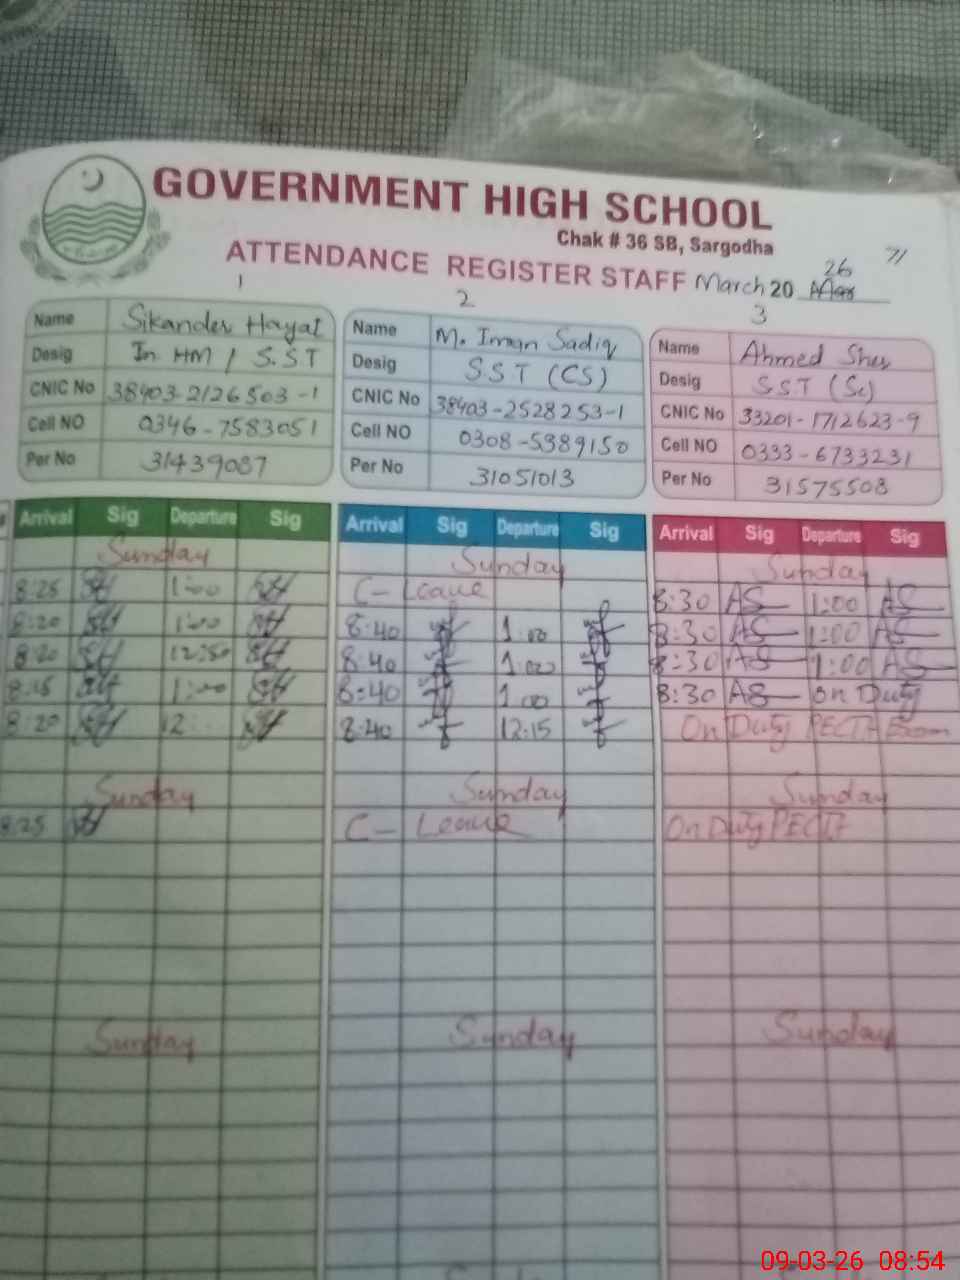 GOVERNMENT HIGH SCHOOL
Chak # 36 SB, Sargodha
71
ATTENDANCE REGISTER STAFF March 20 26
1 2 3
Name Sikander Hayat
Desig In HM / S.ST
CNIC No 38403-2126503-1
Cell NO 0346-7583051
Per No 31439087
Name M. Iman Sadiq
Desig SST (CS)
CNIC No 38403-2528253-1
Cell NO 0308-5389150
Per No 31051013
Name Ahmed Sher
Desig SST (Sc)
CNIC No 33201-1712623-9
Cell NO 0333-6733231
Per No 31575508
Arrival Sig Departure Sig Arrival Sig Departure Sig Arrival Sig Departure Sig
Sunday Sunday Sunday
8:25 1:00 C- Leave 8:30 AS 1:00 AS
8:20 1:00 8:40 1:00 8:30 AS 1:00 AS
8:20 12:50 8:40 1:00 8:30 AS 1:00 AS
8:15 1:00 8:40 1:00 8:30 AS on Duty
8:20 12: 8:40 12:15 On Duty PECTA Exam
Sunday Sunday Sunday
8:25 C- Leave On Duty PECTA
Sunday Sunday Sunday
09-03-26 08:54